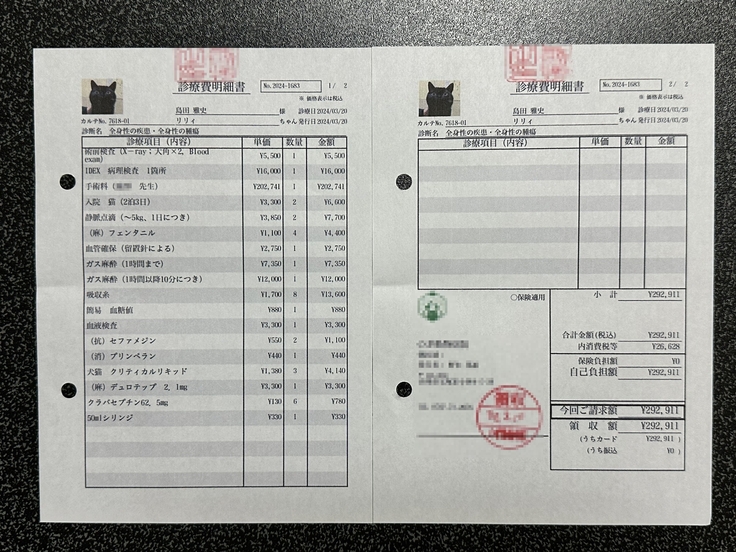 診療費明細書
No.2024-1683
1/ 2
※ 価格表示は税込
島田 雅史 様
診療日2024/03/20
カルテNo. 7618-01
リリィ ちゃん
発行日2024/03/20
診断名 全身性の疾患・全身性の腫瘍
診療項目（内容） 単価 数量 金額
術前検査（X－ray；大角×2，Blood exam） ¥5,500 1 ¥5,500
IDEX 病理検査 1箇所 ¥16,000 1 ¥16,000
手術料（ 先生） ¥202,741 1 ¥202,741
入院 猫（2泊3日） ¥3,300 2 ¥6,600
静脈点滴（～5kg、1日につき） ¥3,850 2 ¥7,700
（麻）フェンタニル ¥1,100 4 ¥4,400
血管確保（留置針による） ¥2,750 1 ¥2,750
ガス麻酔（1時間まで） ¥7,350 1 ¥7,350
ガス麻酔（1時間以降10分につき） ¥12,000 1 ¥12,000
吸収糸 ¥1,700 8 ¥13,600
簡易 血糖値 ¥880 1 ¥880
血液検査 ¥3,300 1 ¥3,300
（抗）セファメジン ¥550 2 ¥1,100
（消）プリンペラン ¥440 1 ¥440
犬猫 クリティカルリキッド ¥1,380 3 ¥4,140
（麻）デュロテップ 2．1mg ¥3,300 1 ¥3,300
クラバセプチン62．5mg ¥130 6 ¥780
50mlシリンジ ¥330 1 ¥330
診療費明細書
No.2024-1683
2/ 2
※ 価格表示は税込
島田 雅史 様
診療日2024/03/20
カルテNo. 7618-01
リリィ ちゃん
発行日2024/03/20
診断名 全身性の疾患・全身性の腫瘍
診療項目（内容） 単価 数量 金額
○保険適用
小 計 ¥292,911
合計金額(税込) ¥292,911
内消費税等 ¥26,628
保険負担額 ¥0
自己負担額 ¥292,911
今回ご請求額 ¥292,911
領 収 額 ¥292,911
(うちカード ¥292,911 )
(うち振込 ¥0 )